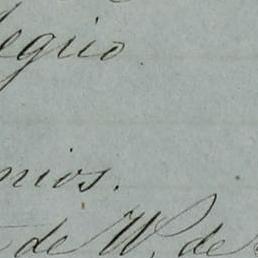 legrio.
nios.
de W. de